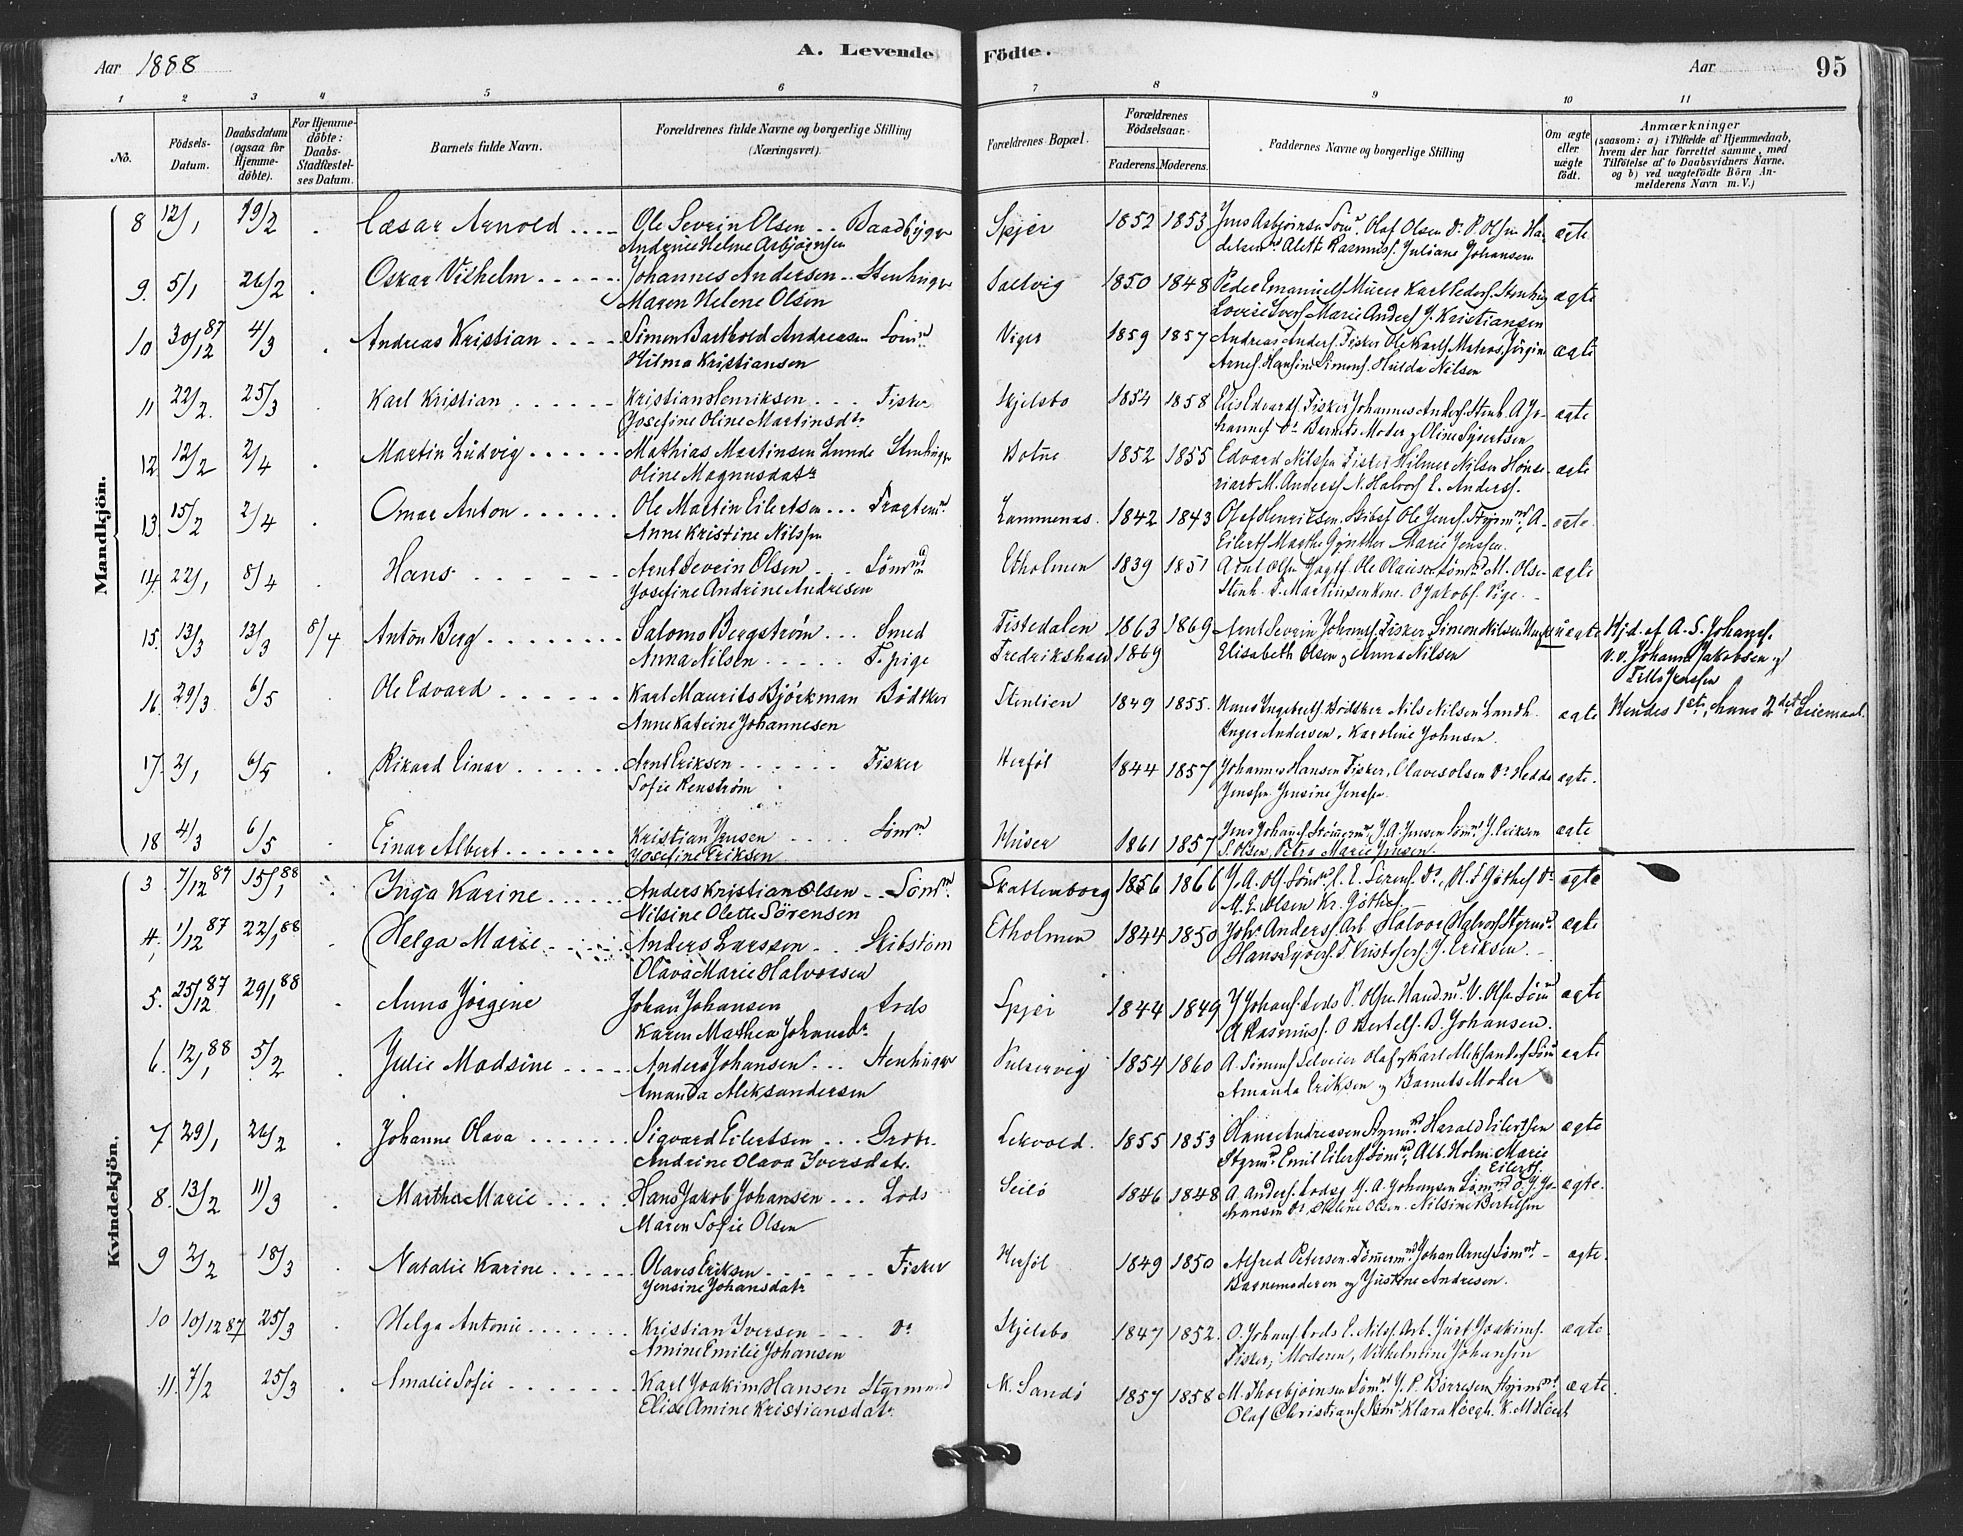 Aar 1888 A. Levende Födte. Aar 95
1 2 3 4 5 6 7 8 9 10 11
No. Födsels-Datum. Daabsdatum (ogsaa for Hjemme-döbte). For Hjemme-döbte: Daabs-Stadfæstel-ses Datum. Barnets fulde Navn. Forældrenes fulde Navne og borgerlige Stilling (Næringsvei). Forældrenes Bopæl. Forældrenes Födselsaar. Faderens. Moderens. Faddernes Navne og borgerlige Stilling Om ægte eller uægte födt. Anmærkninger (saasom: a) i Tilfælde af Hjemmedaab, hvem der har forrettet samme, med Tilföielse af to Daabsvidners Navne. og b) ved uægtefödte Börn An-melderens Navn m. V.)
Mandkjön.
8 12/1 19/2 Cæsar Arnold Ole Severin Olsen Baadbygr Spjær 1852 1853 Jens Asbjörnsen Söm. Olaf Olsen Do P. Olsen Han- ægte
Andrine Helene Asbjörnsen delsm Alette Rasmuss. Juliane Johansen
9. 5/1 26/2 Oskar Vilhelm Johannes Andersen Stenhugr 1850 1848 Peder Emanuels Murer Karl Peders. Stenhug ægte
Maren Helene Olsen Lovise Ivers. Marie Anders. J. Kristiansen
10 30/12 87 4/3 Andreas Kristian Simon Barthold Andreassen Sömd Viger 1859 1857 Andreas Anders. Fisker Ole Karls. Matros, Jörgine ægte
Hilma Kristiansen Arnes. Hansine Simons. Hulda Nilsen
11 22/2. 25/3 Karl Kristian Kristian Henriksen Fisker Skjelsbo 1854 1858 Elis Edvards. Fisker Johannes Anders. Stenh. A Jo- ægte
Josefine Oline Martinsdtr hannes Do Barnets Moder og Oline Syvertsen
12 12/2 2/4 Martin Ludvig Mathias Martinsen Lunde Stenhugr Botne 1852 1855 Edvard Nilssen Fisker Hilmer Nilsen ægte
Oline Magnusdatr M. Anders. N. Halvors. E. Anders.
13. 15/2 2/4 Omar Anton Ole Martin Eilertsen Fragtem. Lammenæs. 1842 1843 Olaf Henriksen. Skibsf. Ole Jens. Styrmnd. A- ægte.
Anne Kristine Nilssen Eilerts Marthe Gynther Marie Jenssen.
14. 22/1 8/4 Hans Arnt Severin Olsen Sömnd Etholmen 1839 1851 Arnt Olsen Ole Olaisen Sömd M. Olse- ægte
Josefine Andrine Andresen Stenh. T. Martinsen Kone. O Jakobs. Pige.
15. 13/3 13/3 8/4 Anton Berg Salomo Bergström Smed Tistedalen 1863 1869 Arnt Severin Johanns. Fisker Simon Nilsen uægte Hj.d. af A. S. Johans.
Anna Nilsen T. pige Fredrikshald 1869 Elisabeth Olsen og Anna Nilsen v.v. Johanne Jakobsen og
Jenssen
16. 29/3 6/5 Ole Edvard Karl Maurits Björkman Bödtker Stenlien 1849 1855. Hans Ingebrets. Bödtker Nils Nilsen Landh. ægte Hendes 1ste, hans 2det Leiermaal.
Anne Katrine Johannesen Inger Andersen. Karoline Johnsen.
17. 2/1 6/5 Rikard Einar Arnt Eriksen Fisker Herföl 1844 1857 Johannes Hansen Fisker, Olaves olsen Do Hedda ægte.
Sofie Renström Jenssen Jensine Jenssen.
18 4/3 6/5 Einar Albert Kristian Jensen Sömn Huser 1861 1857 Jens Johanns. Tömmermd, J. A. Jensen Sömd. J. Eriksen ægte
Josefine Eriksen S. Olsen, Petra Marie Jensen.
Kvindekjön.
3 7/12 87 15/1 88 Inga Karine Anders Kristian Olsen Sömd. Skattenborg 1856 1866 J. A. Ols. Sömd ægte
Nilsine Olette Sörensen M. E. Olsen Kr. Göthe
4. 1/12 87 22/1 88 Helga Marie Anders Larssen Skibstöm Etholmen 1844 1850 Johs Anderss. Arb. Halvor Halvors Styrmd. ægte
Olava Marie Halvorsen Hans T. Kristofers. J. Eriksen.
5. 25/12 87 29/1 88 Anna Jörgine Johan Johansen Lods Spjær 1844 1849 J Johans. Lods P. Olsen Handm. V. Olsen Sömd ægte
Karen Mathea Johansdr A Rasmuss. O Bertels. B. Johansen.
6. 12/1 88 5/2 Julie Madsine Anders Johansen Stenhugger 1854 1860 A. Simons. Selveier Olaf og Karl Aleksanders Söm ægte
Amanda Aleksandersen Amanda Eriksen og Barnets Moder
7 29/1 26/2 Johanne Olava Sigvard Eilertsen Grovs. Lekvold. 1855 1853 Hans Andreassen Styrmd. Harald Eilertsen ægte
Andrine Olava Iversdatr. Styrmd. Emil Eilerts. Sömnd, Alb. Holm. Marie
Eilerts.
8. 13/2 11/3 Martha Marie Hans Jakob Johansen Lods Seilö 1846 1848 A. Anders. Lods J. A. Johansen Sömnd O. J. Jo- ægte.
Maren Sofie Olsen hansen Do Olsen. Nilsine Bertelsen
9 2/2 18/3 Natalie Karine Olaves Eriksen Fisker Herföl 1849 1850 Alfred Petersen. Tömmermnd Johan Arnes Sömnd ægte.
Jensine Johansdatr Barnemoderen og Justine Andresen.
10 10/12 87 25/3 Helga Antonie Kristian Iversen Do Skjelsbo 1847 1852. O. Johans. Lods E. Nils. Arb. Joakims. ægte.
Amine Emilie Johansen Fisker, Moderen, Vilhelmine Johansen
11. 7/2 25/3 Amalie Sofie Karl Joakim Hansen Styrmand N. Sandö 1857 1858 M. Thorbjörnsen Sömd J. P. Börresen Styrmd. ægte.
Elise Amine Kristiansdatr Olaf Christians. Sömd. Klara Höegh. K. M Höegh